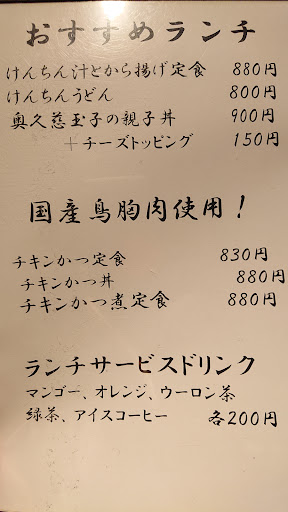 おすすめランチ
けんちん汁とから揚げ定食 880円
けんちんうどん 800円
奥久慈玉子の親子丼 900円
＋チーズトッピング 150円
国産鳥胸肉使用！
チキンかつ定食 830円
チキンかつ丼 880円
チキンかつ煮定食 880円
ランチサービスドリンク
マンゴー、オレンジ、ウーロン茶
緑茶、アイスコーヒー 各200円